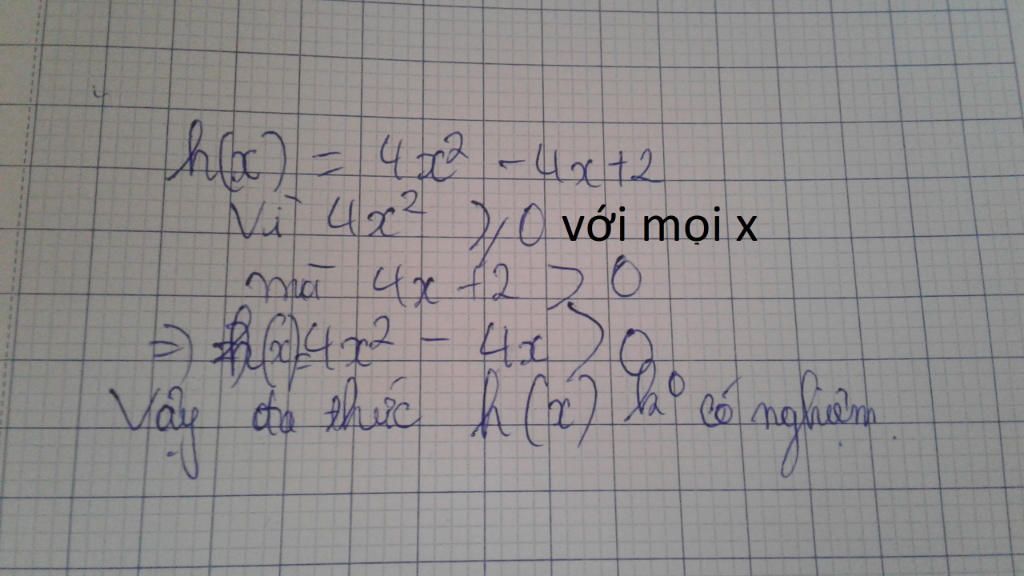 h(x) = 4x² - 4x + 2
Vì 4x² ⩾ 0 với mọi x
mà 4x + 2 > 0
=> h(x) = 4x² - 4x > 0
Vậy đa thức h(x) k⁰ có nghiệm.